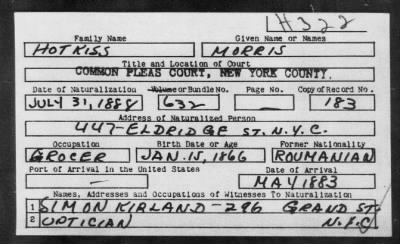 H322
Family Name Given Name or Names
HOTKISS MORRIS
Title and Location of Court
COMMON PLEAS COURT, NEW YORK COUNTY.
Date of Naturalization Volume or Bundle No. Page No. Copy of Record No.
JULY 31, 1888 632 — 183
Address of Naturalized Person
447-ELDRIDGE ST. N.Y.C.
Occupation Birth Date or Age Former Nationality
GROCER JAN. 15, 1866 ROUMANIAN
Port of Arrival in the United States Date of Arrival
— MAY 1883
Names, Addresses and Occupations of Witnesses To Naturalization
1 SIMON KIRLAND-296 GRAND ST.
2 OPTICIAN N.Y.C.